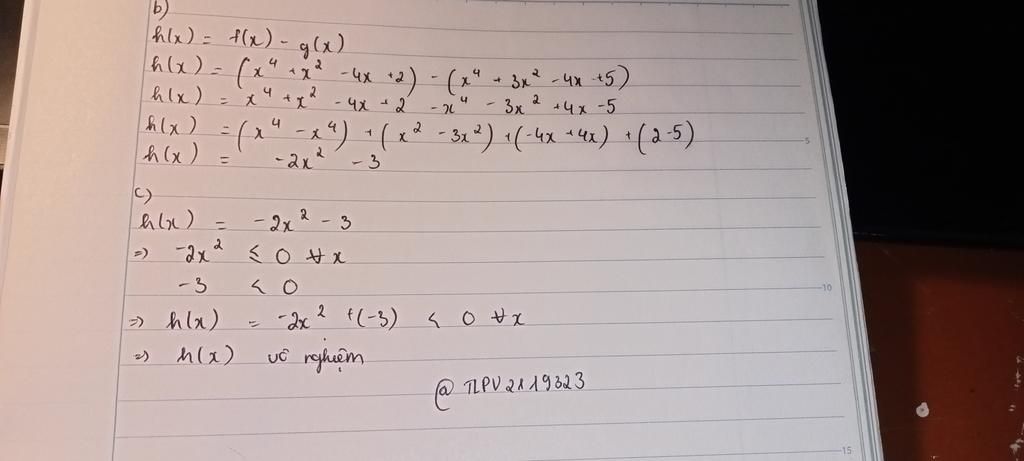 b)
h(x) = f(x) - g(x)
h(x) = (x⁴ + x² - 4x + 2) - (x⁴ + 3x² - 4x + 5)
h(x) = x⁴ + x² - 4x + 2 - x⁴ - 3x² + 4x - 5
h(x) = (x⁴ - x⁴) + (x² - 3x²) + (-4x + 4x) + (2-5)
h(x) = -2x² - 3
c)
h(x) = -2x² - 3
=> -2x² ≤ 0 ∀x
-3 < 0
=> h(x) = -2x² + (-3) < 0 ∀x
=> h(x) vô nghiệm
@TLPV2119323
5
10
15